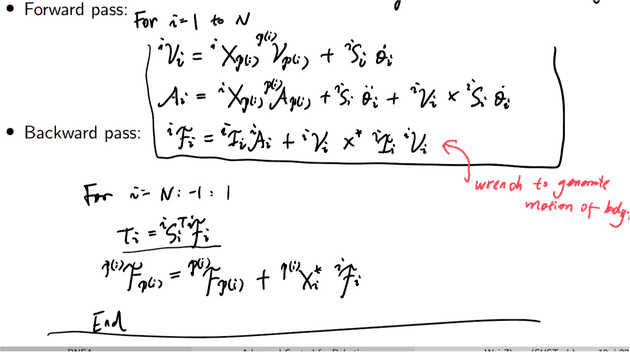 • Forward pass: For i=1 to N
ⁱ𝒱ᵢ = ⁱX_p(i) ^p(i)𝒱_p(i) + ⁱSᵢ θ̇ᵢ
𝒜ᵢ = ⁱX_p(i) ^p(i)𝒜_p(i) + ⁱSᵢ θ̈ᵢ + ⁱ𝒱ᵢ × ⁱSᵢ θ̇ᵢ
• Backward pass: ⁱℱᵢ = ⁱℐᵢ ⁱ𝒜ᵢ + ⁱ𝒱ᵢ ×* ⁱℐᵢ ⁱ𝒱ᵢ
wrench to generate
motion of body i
For i= N:-1:1
τᵢ = ⁱSᵢᵀ ⁱℱᵢ
^p(i)ℱ_p(i) = ^p(i)ℱ_p(i) + ^p(i)Xᵢ* ⁱℱᵢ
End